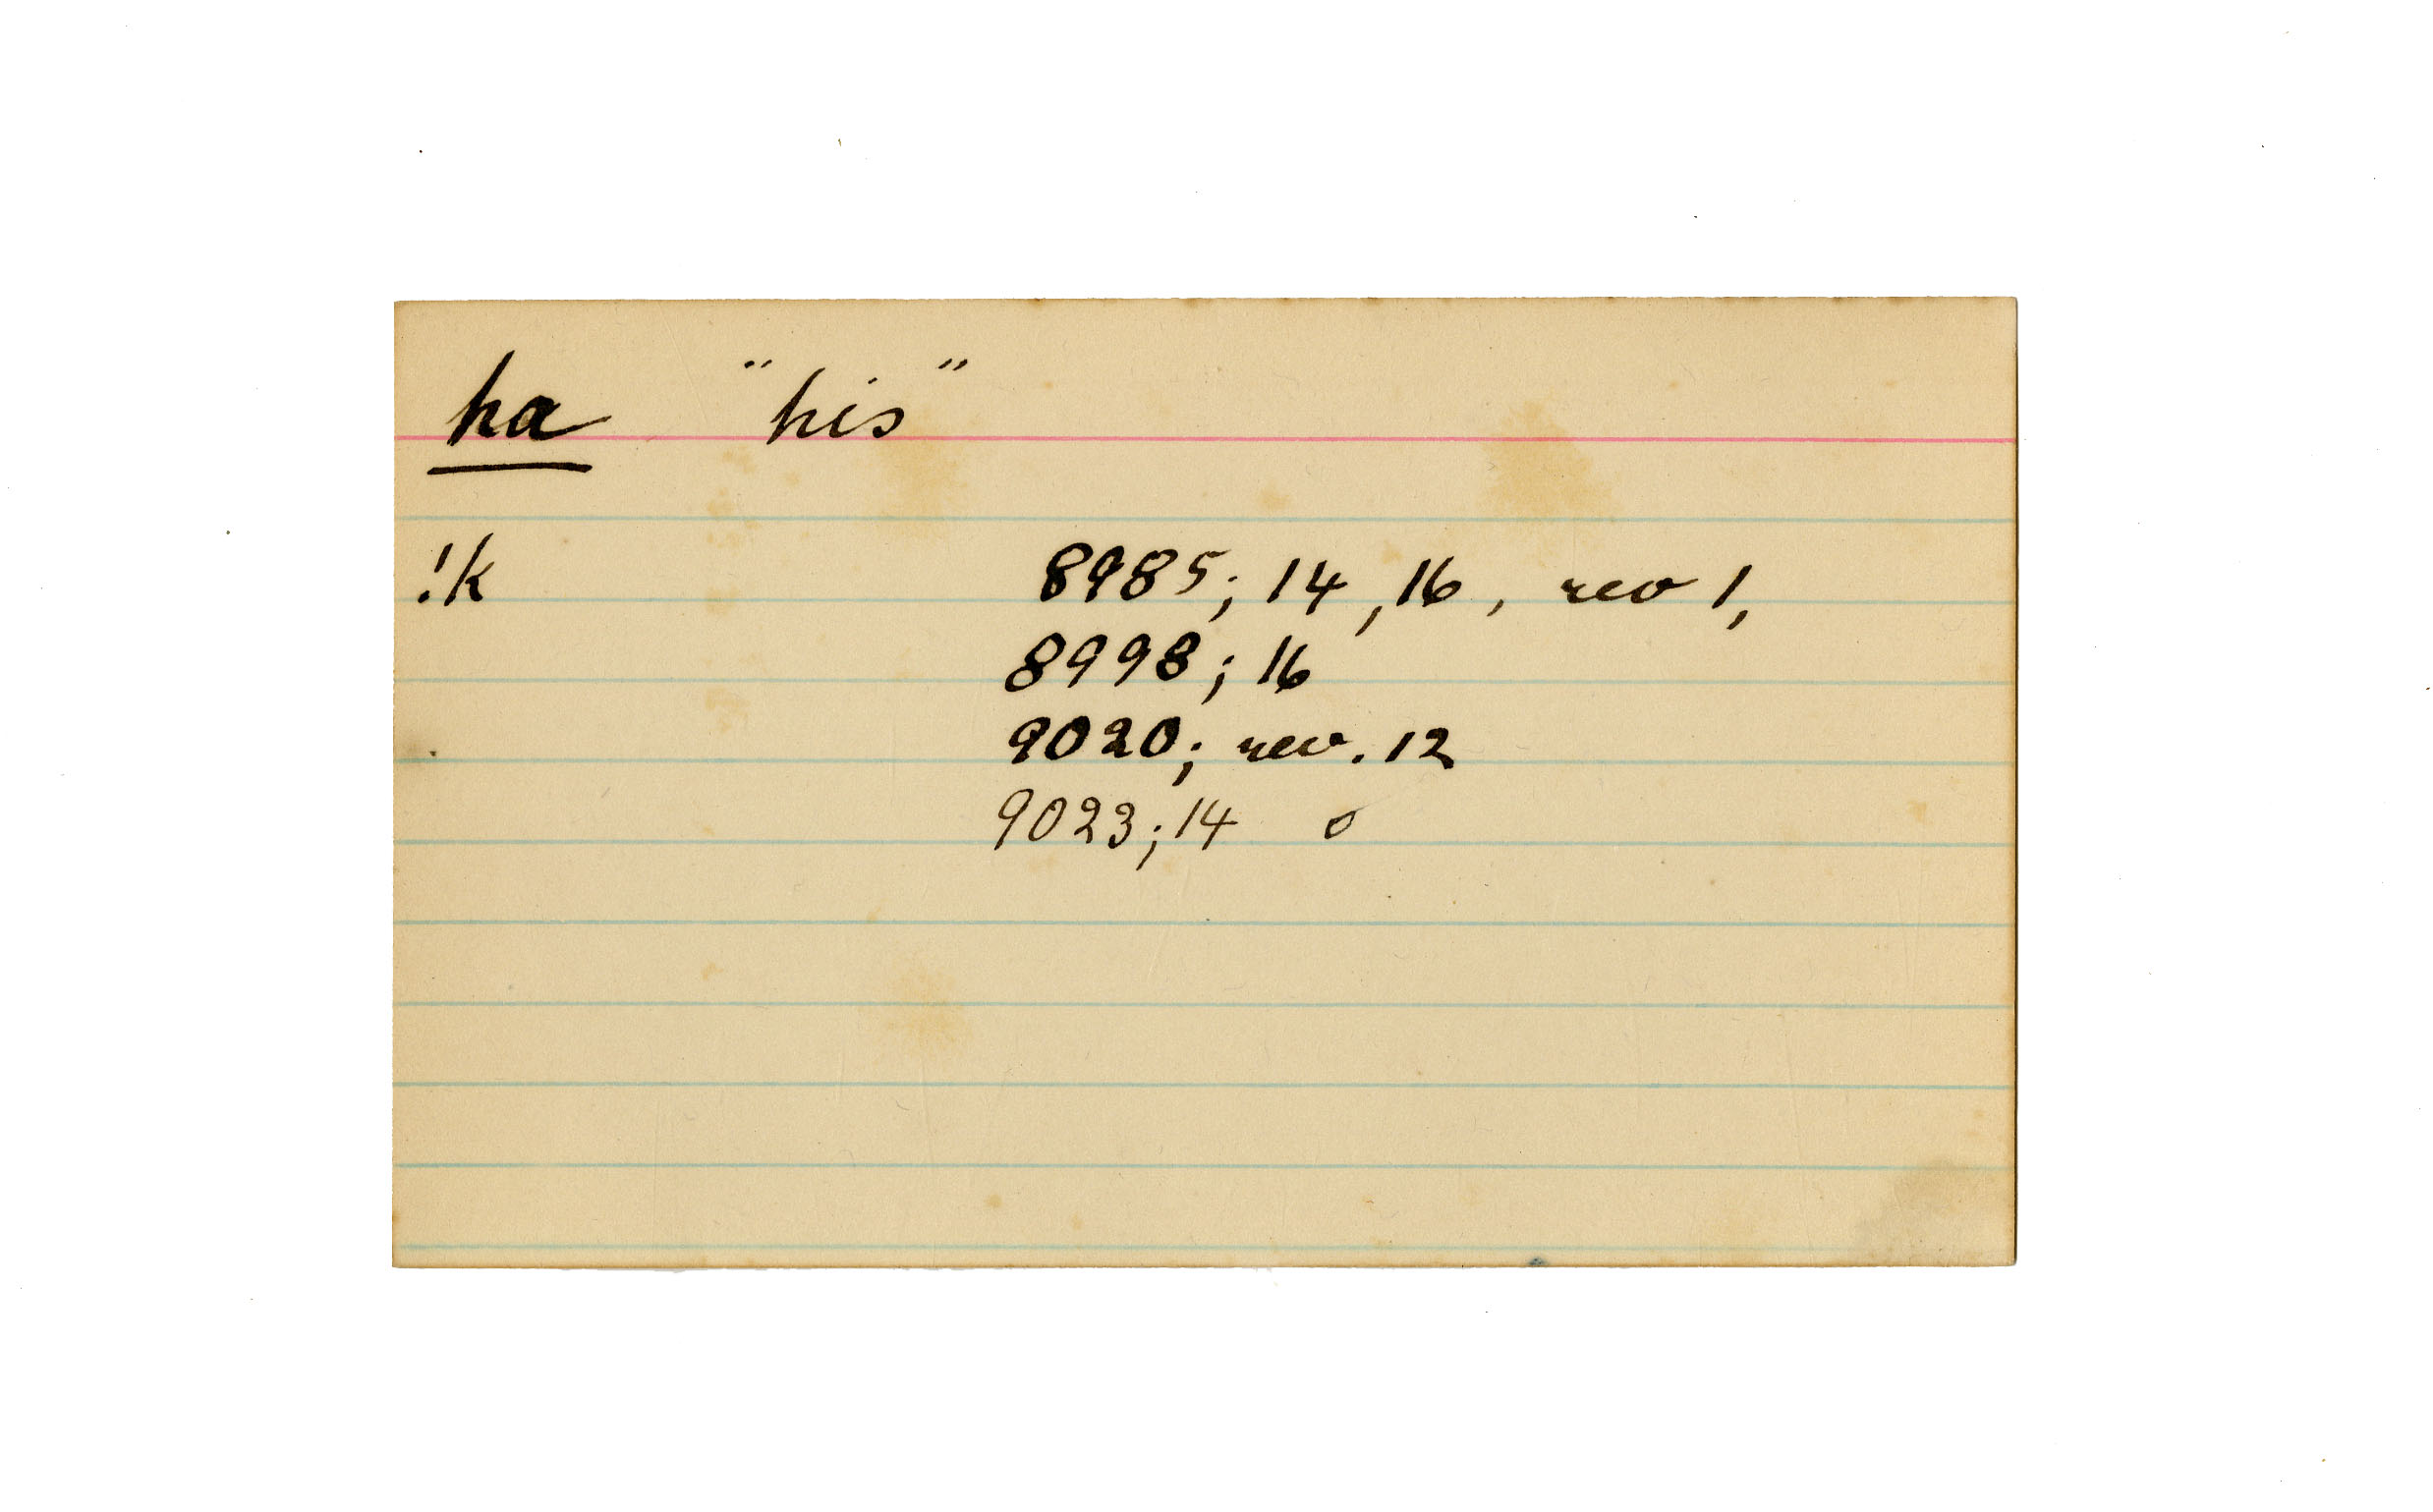 ha "his"
!k 8985; 14, 16, rev 1,
8998; 16
9020; rev. 12
9023; 14